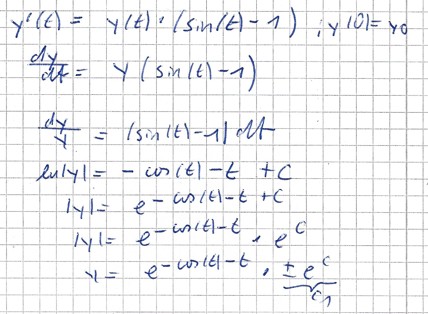 y'(t) = y(t) · (sin(t) - 1) , y(0) = y0
dy/dt = y (sin(t) - 1)
dy/y = (sin(t) - 1) dt
ln|y| = - cos(t) - t + c
|y| = e^{- cos(t) - t + c}
|y| = e^{- cos(t) - t} · e^c
y = e^{- cos(t) - t} · ± e^c
c1